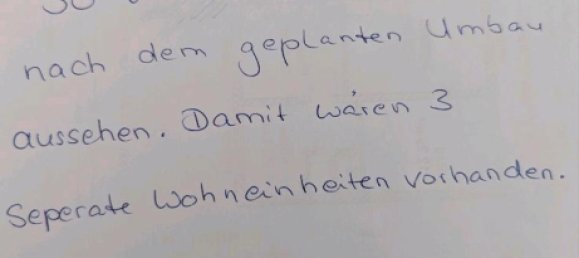 nach dem geplanten Umbau
aussehen. Damit wären 3
Seperate Wohneinheiten vorhanden.